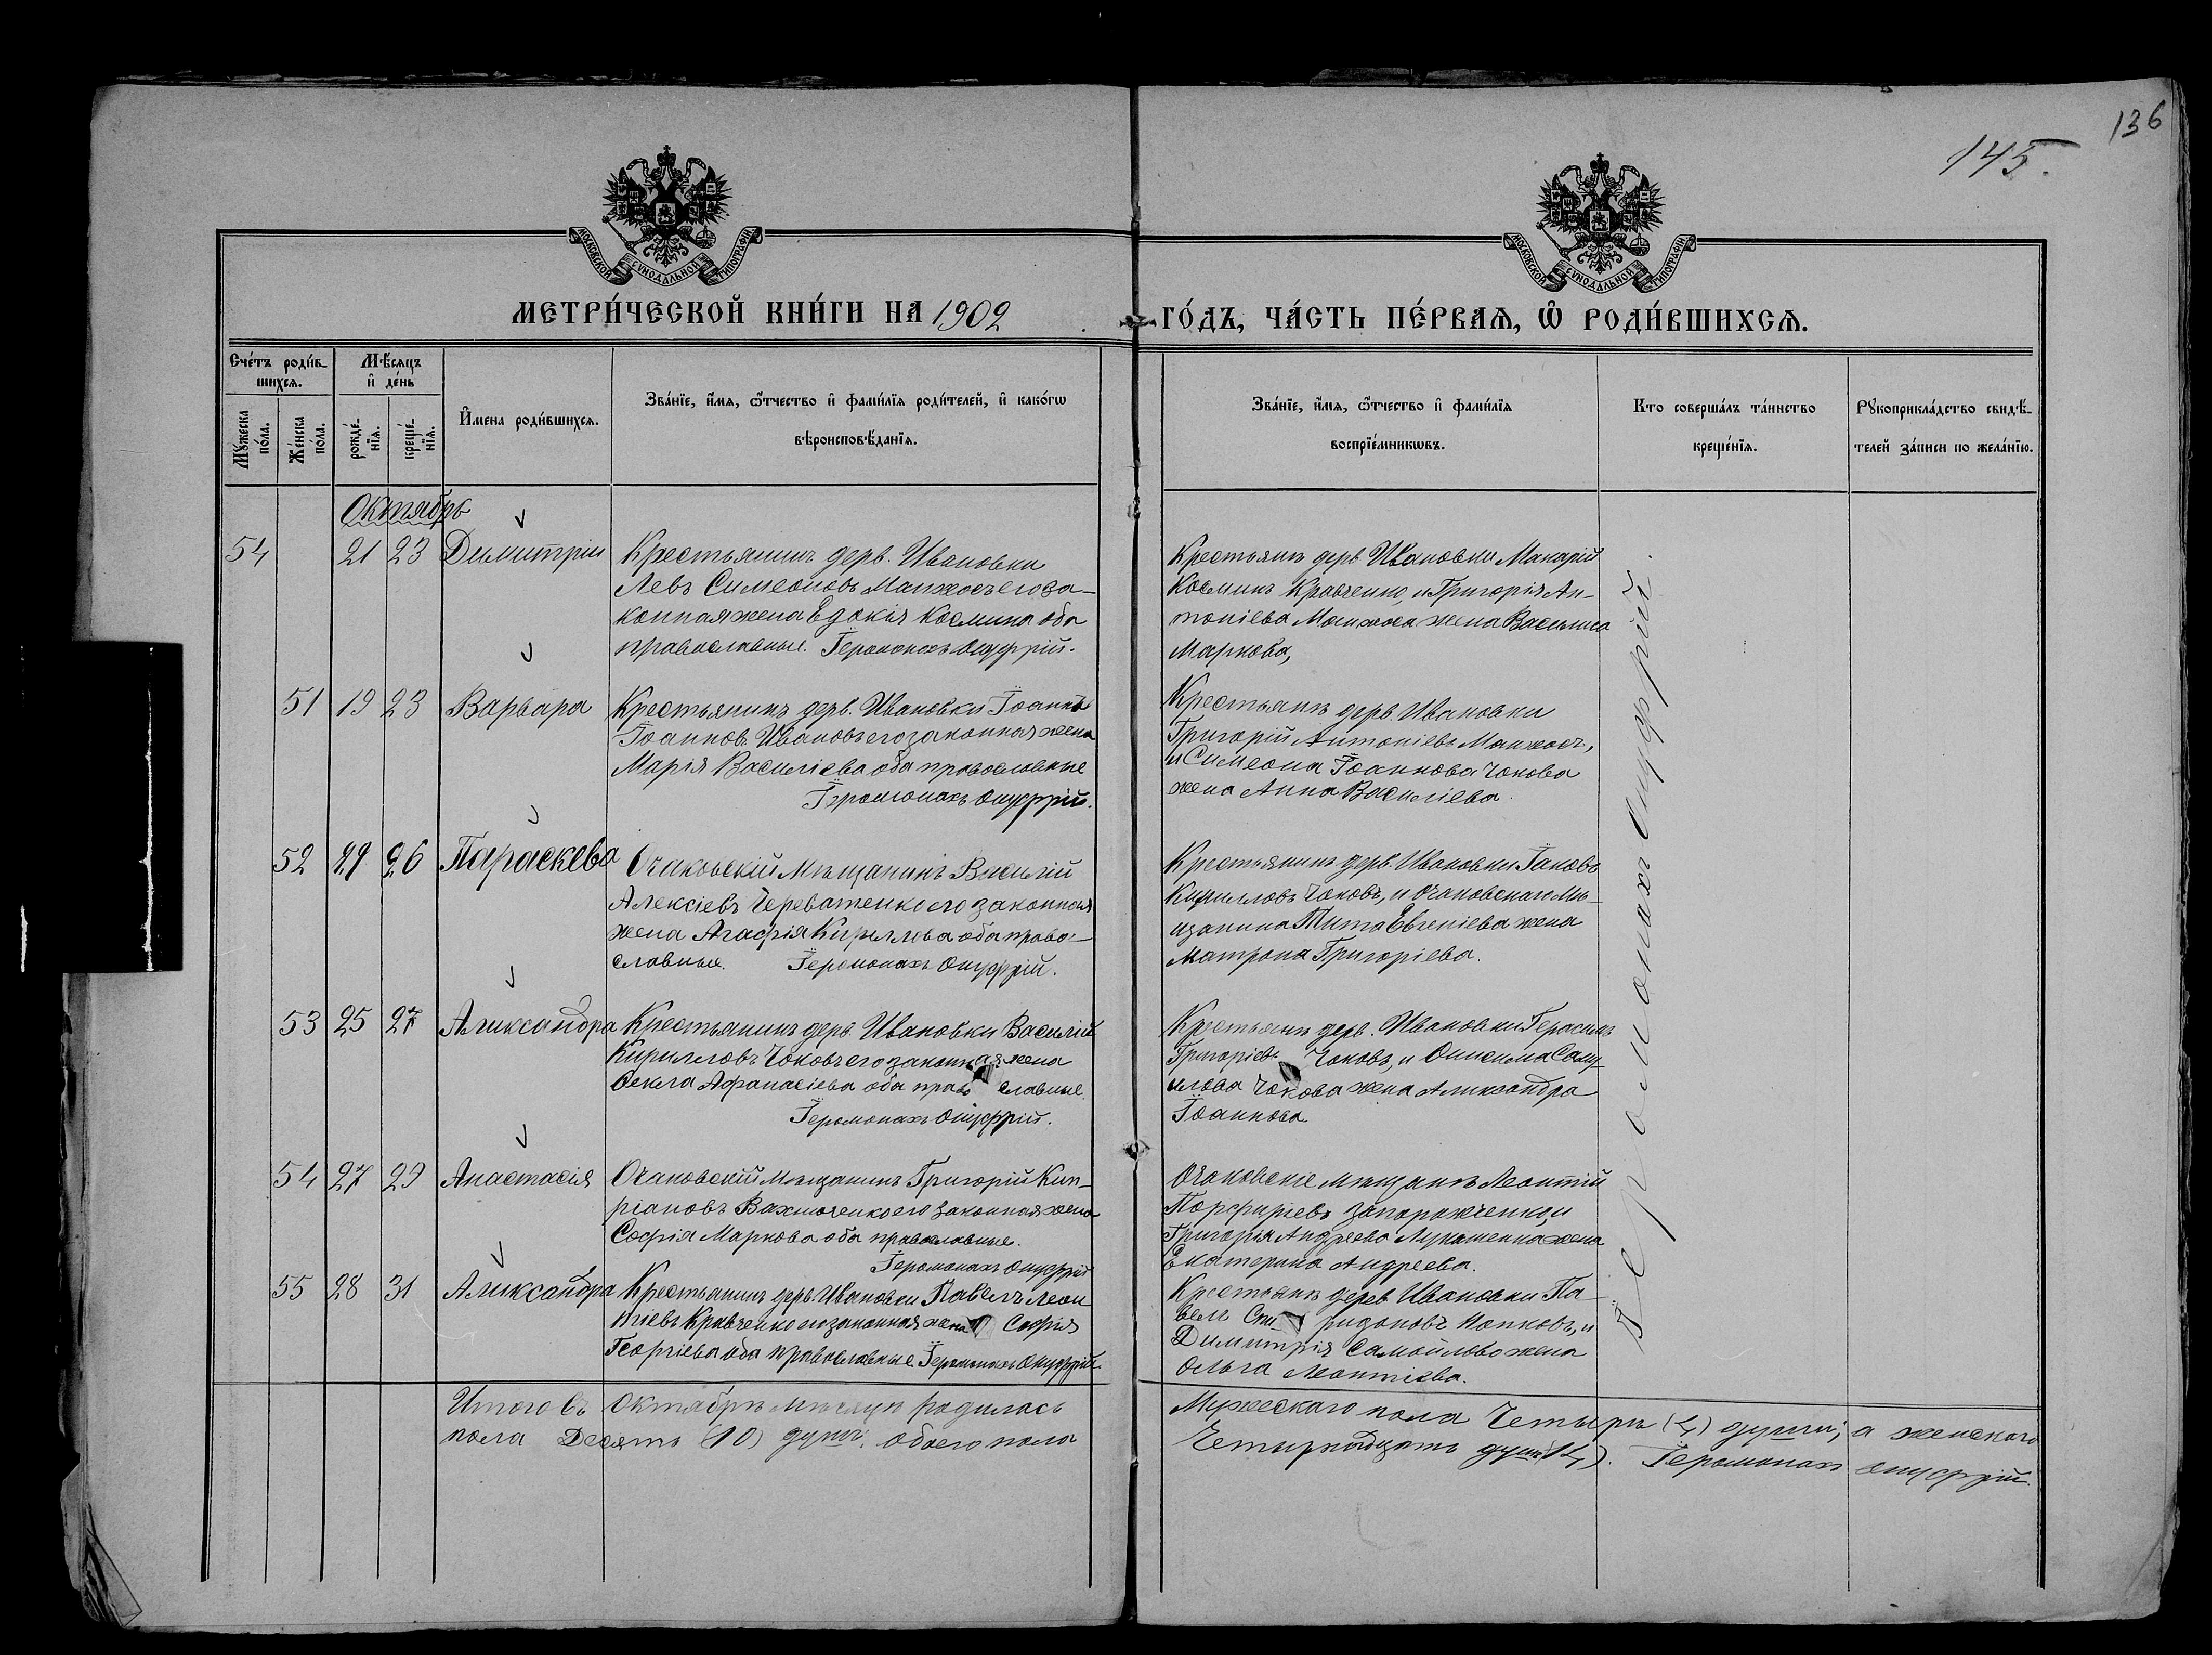 136
145.
МОСКОВСКОЙ СѴНОДАЛЬНОЙ ТИПОГРАФІИ
МОСКОВСКОЙ СѴНОДАЛЬНОЙ ТИПОГРАФІИ
МЕТРИ́ЧЕСКОЙ КНИ́ГИ НА 1902
ГО́ДЪ, ЧА́СТЬ ПЕ́РВАѦ, Ѡ҆ РОДИ́ВШИХСѦ.
Сче́тъ роди́в-
шихсѧ.
Мѣ́сѧцъ
и҆ де́нь
Мꙋ́жеска
по́ла.
Же́нска
по́ла.
рожде́-
нїѧ.
креще́-
нїѧ.
И҆мена роди́вшихсѧ.
Зва́нїе, и҆́мѧ, ѻ҆́тчество и҆ фами́лїѧ роди́телей, и҆ како́гѡ
вѣроисповѣ́данїѧ.
Зва́нїе, и҆́мѧ, ѻ҆́тчество и҆ фами́лїѧ
воспрїе́мникѡвъ.
Кто соверша́лъ та́инство
креще́нїѧ.
Рꙋкоприкла́дство свидѣ́-
телей за́писи по жела́нїю.
Октябрь
54 21 23 Димитрій Крестьянинъ дерв. Ивановки
Левъ Симеоновъ Манжосъ его за-
конная жена Евдокія Космина оба
православные. Іеромонахъ Онуфрій.
Крестьянъ дерв. Ивановки Макарій
Косминъ Кравченко, и Григорія Ан-
тоніева Манжоса жена Василиса
Маркова,
51 19 23 Варвара Крестьянинъ дерв. Ивановки Іоаннъ
Іоанновъ Ивановъ его законная жена
Марія Василіева оба православные
Іеромонахъ Онуфрій.
Крестьянъ дерв. Ивановки
Григорій Антоніевъ Манжосъ,
и Симеона Іоаннова Чокова
жена Анна Василіева.
52 22 26 Параскева Очаковскій Мѣщанинъ Василій
Алексіевъ Череватенко его законная
жена Агафія Кириллова оба право-
славные. Іеромонахъ Онуфрій.
Крестьянинъ дерв. Ивановки Іаковъ
Кирилловъ Чоковъ, и Очаковскаго Мѣ-
щанина Тита Евгеніева жена
Матрона Григоріева.
53 25 27 Александра Крестьянинъ дерв Ивановки Василій
Кирилловъ Чоковъ его законная жена
Өекла Афанасіева оба православные
Іеромонахъ Онуфрій.
Крестьянъ дерв. Ивановки Герасимъ
Григоріевъ Чоковъ, и Онисима Саму-
илова Чокова жена Александра
Іоаннова
54 27 29 Анастасія Очаковскій мѣщанинъ Григорій Кип-
ріановъ его законная жена
Софія Маркова оба православные.
Іеромонахъ Онуфрій
Очаковскіе мѣщанъ Леонтій
Порфиріевъ Запорожченко, и
Григорія Андреева жена
Екатерина Андреева.
55 28 31 Александра Крестьянинъ дерв. Ивановки Павелъ Леон
тіевъ Кравченко его законная жена Софія
Георгіева оба православные Іеромонахъ Онуфрій.
Крестьянъ дерев Ивановки Па-
велъ Спиридоновъ Попковъ, и
Димитрія Самойлова жена
Ольга Леонтіева.
Іеромонахъ Онуфрій.
Итого въ Октябрѣ мѣсяцѣ родилось Мужескаго пола Четырѣ (4) души; а женскаго
пола Десять (10) душъ. обоего пола Четырнадцать душъ (14). Іеромонахъ Онуфрій.